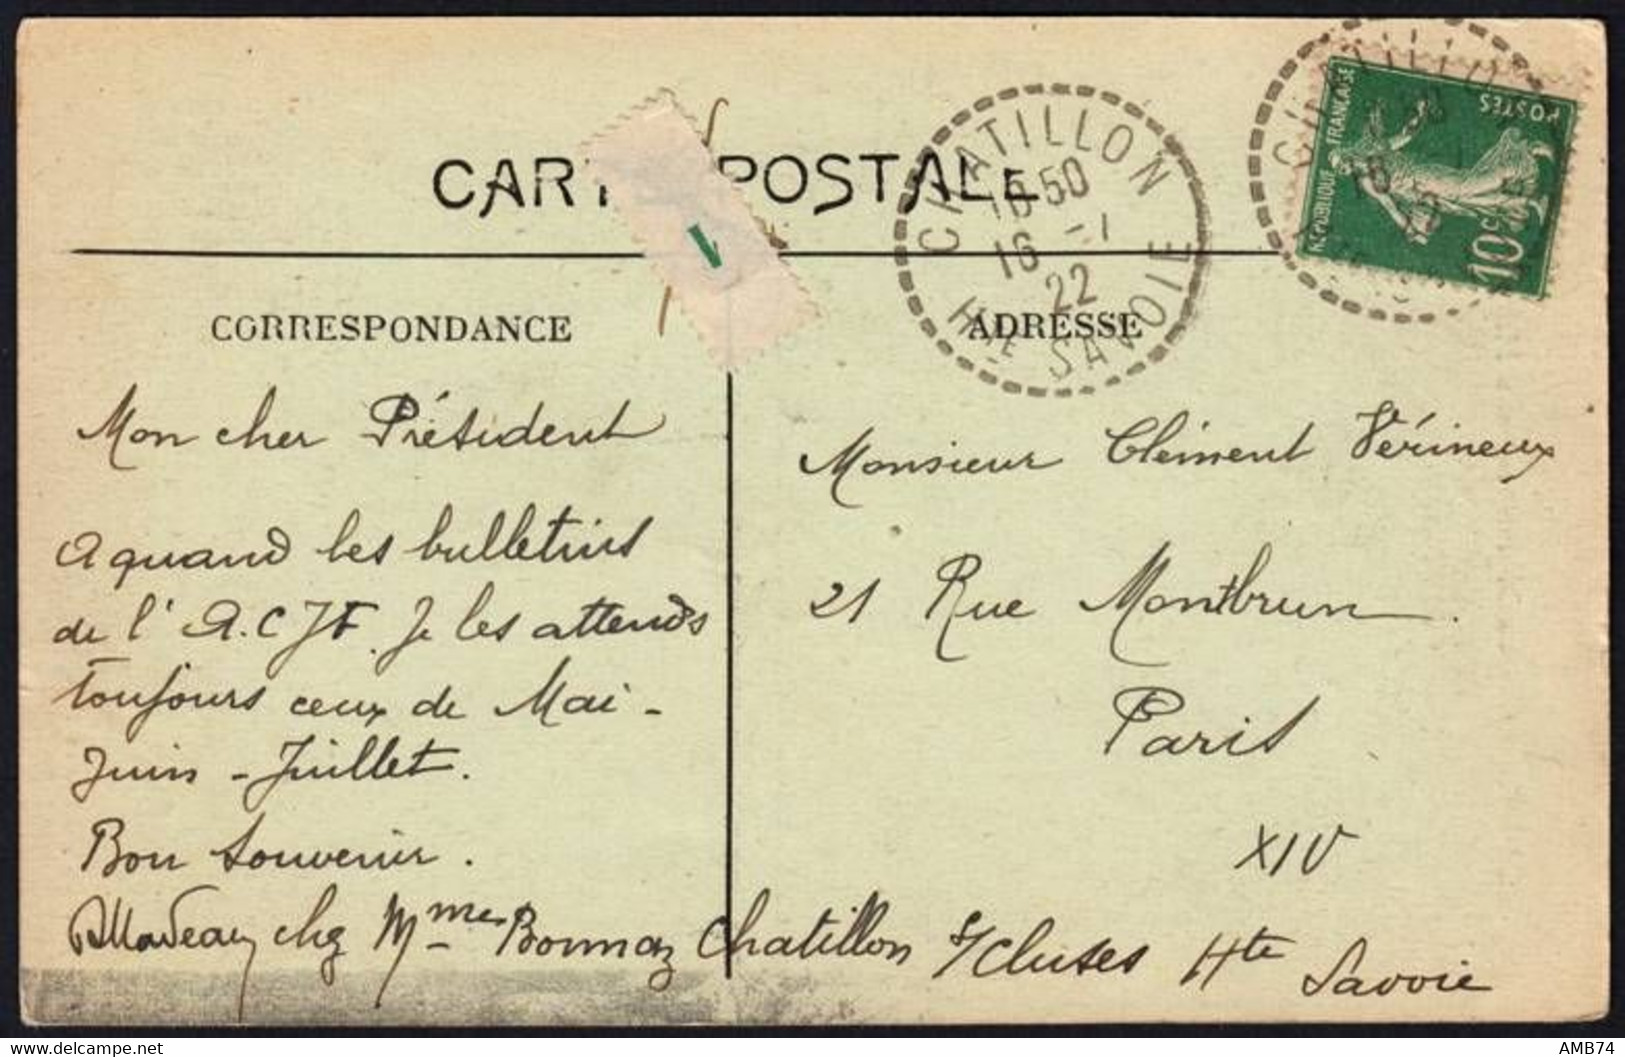 CARTE POSTALE
CHATILLON
16 50
16 -1
22
Hte SAVOIE
REPUBLIQUE FRANÇAISE
POSTES
10c
1
CORRESPONDANCE
ADRESSE
Mon cher Président
A quand les bulletins
de l' A.C.J.F. Je les attends
toujours ceux de Mai -
Juin - Juillet.
Bon souvenir.
chez Mme Bonnaz Chatillon s/Cluses Hte Savoie
Monsieur Clément Vérineux
21 Rue Montbrun.
Paris
XIV
delcampe.net
AMB74